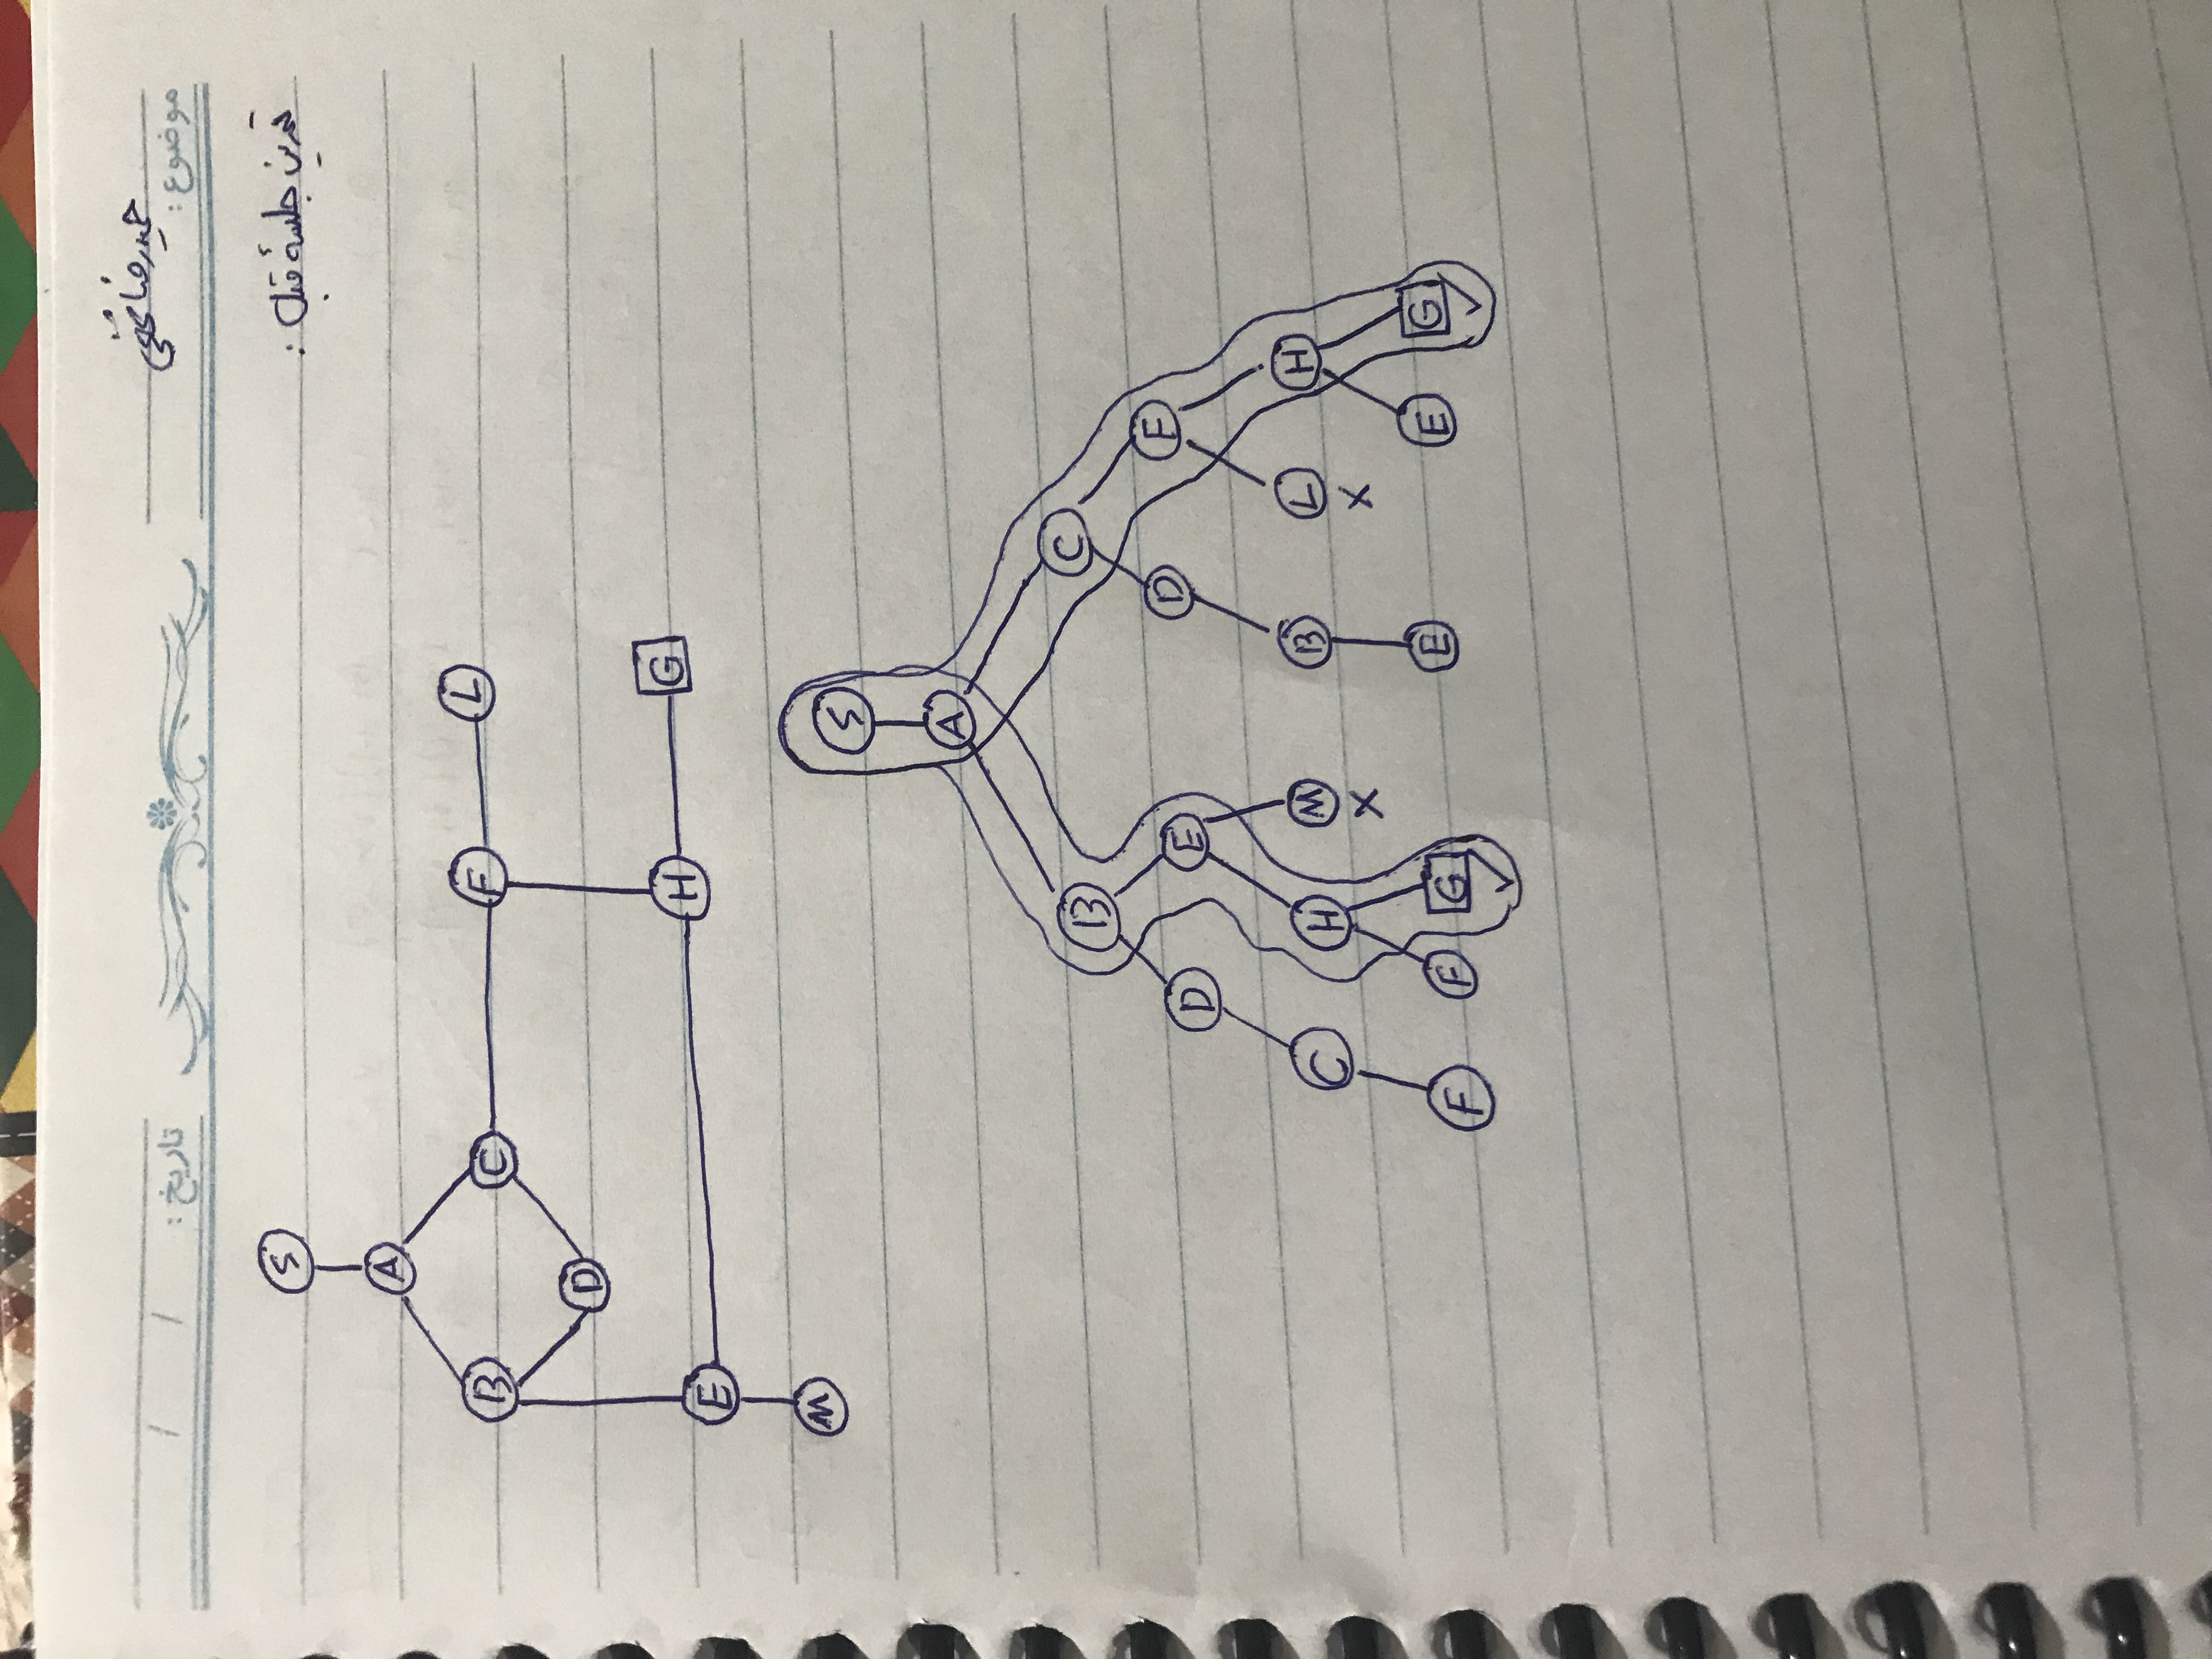 حمیدرضا
موضوع :
تاریخ : / /
تمرین جلسهٔ قبل :
S
A
B C F L
D
H G
E
M
S
A
B C
D E D F
C H M B L H
x x
F F G E E G
✓ ✓